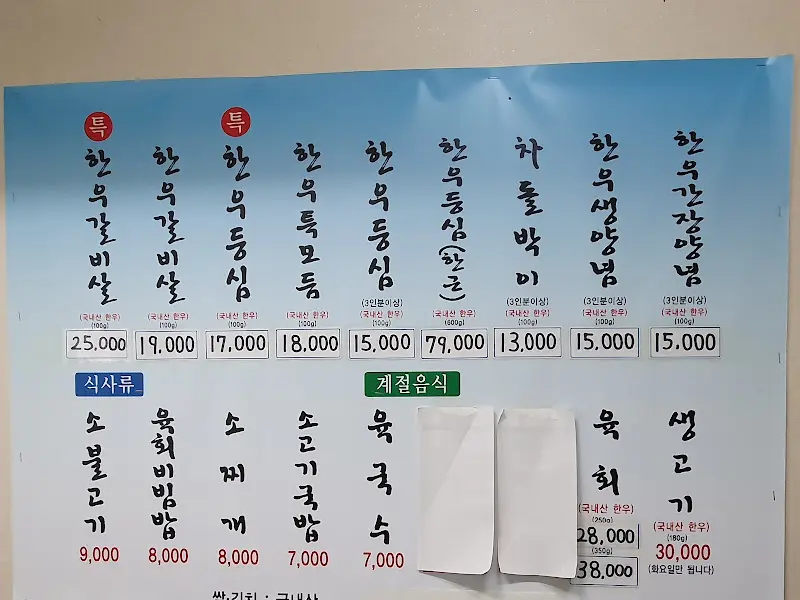 특
한우갈비살
(국내산 한우)
(100g)
25,000
한우갈비살
(국내산 한우)
(100g)
19,000
특
한우등심
(국내산 한우)
(100g)
17,000
한우특모듬
(국내산 한우)
(100g)
18,000
한우등심
(3인분이상)
(국내산 한우)
(100g)
15,000
한우등심(한근)
(국내산 한우)
(600g)
79,000
차돌박이
(3인분이상)
(국내산 한우)
(100g)
13,000
한우생양념
(3인분이상)
(국내산 한우)
(100g)
15,000
한우간장양념
(3인분이상)
(국내산 한우)
(100g)
15,000
식사류
소불고기
9,000
육회비빔밥
8,000
소찌개
8,000
소고기국밥
7,000
계절음식
육국수
7,000
육회
(국내산 한우)
(250g)
28,000
(350g)
38,000
생고기
(국내산 한우)
(180g)
30,000
(화요일만 됩니다)
쌀,김치 : 국내산